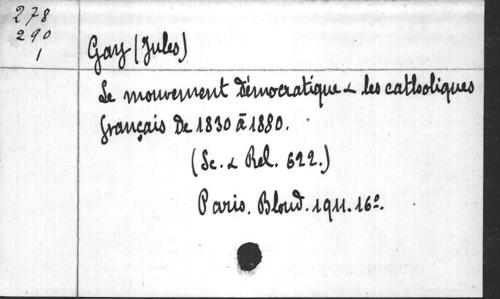 278
290
1
Gay (Jules)
Le mouvement démocratique & les catholiques
français de 1830 à 1880.
(Sc. & Rel. 622.)
Paris. Bloud. 1911. 16º.